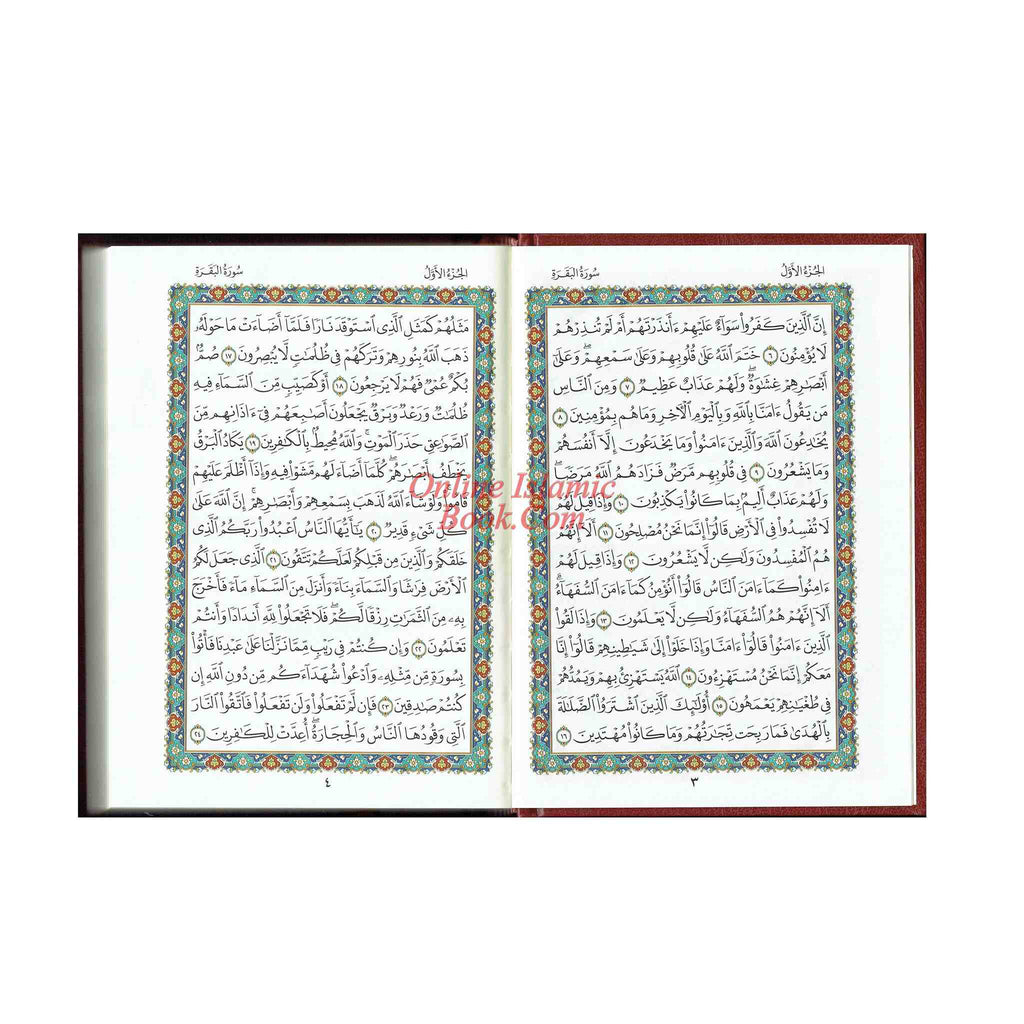 الجُزْءُ الأَوَّلُ
سُورَةُ البَقَرَةِ
إِنَّ ٱلَّذِينَ كَفَرُوا۟ سَوَآءٌ عَلَيْهِمْ ءَأَنذَرْتَهُمْ أَمْ لَمْ تُنذِرْهُمْ
لَا يُؤْمِنُونَ ٦ خَتَمَ ٱللَّهُ عَلَىٰ قُلُوبِهِمْ وَعَلَىٰ سَمْعِهِمْ ۖ وَعَلَىٰٓ
أَبْصَٰرِهِمْ غِشَٰوَةٌ ۖ وَلَهُمْ عَذَابٌ عَظِيمٌ ٧ وَمِنَ ٱلنَّاسِ
مَن يَقُولُ ءَامَنَّا بِٱللَّهِ وَبِٱلْيَوْمِ ٱلْءَاخِرِ وَمَا هُم بِمُؤْمِنِينَ ٨
يُخَٰدِعُونَ ٱللَّهَ وَٱلَّذِينَ ءَامَنُوا۟ وَمَا يَخْدَعُونَ إِلَّآ أَنفُسَهُمْ
وَمَا يَشْعُرُونَ ٩ فِى قُلُوبِهِم مَّرَضٌ فَزَادَهُمُ ٱللَّهُ مَرَضًا ۖ
وَلَهُمْ عَذَابٌ أَلِيمٌۢ بِمَا كَانُوا۟ يَكْذِبُونَ ١٠ وَإِذَا قِيلَ لَهُمْ
لَا تُفْسِدُوا۟ فِى ٱلْأَرْضِ قَالُوٓا۟ إِنَّمَا نَحْنُ مُصْلِحُونَ ١١ أَلَآ إِنَّهُمْ
هُمُ ٱلْمُفْسِدُونَ وَلَٰكِن لَّا يَشْعُرُونَ ١٢ وَإِذَا قِيلَ لَهُمْ
ءَامِنُوا۟ كَمَآ ءَامَنَ ٱلنَّاسُ قَالُوٓا۟ أَنُؤْمِنُ كَمَآ ءَامَنَ ٱلسُّفَهَآءُ ۗ
أَلَآ إِنَّهُمْ هُمُ ٱلسُّفَهَآءُ وَلَٰكِن لَّا يَعْلَمُونَ ١٣ وَإِذَا لَقُوا۟
ٱلَّذِينَ ءَامَنُوا۟ قَالُوٓا۟ ءَامَنَّا وَإِذَا خَلَوْا۟ إِلَىٰ شَيَٰطِينِهِمْ قَالُوٓا۟ إِنَّا
مَعَكُمْ إِنَّمَا نَحْنُ مُسْتَهْزِءُونَ ١٤ ٱللَّهُ يَسْتَهْزِئُ بِهِمْ وَيَمُدُّهُمْ
فِى طُغْيَٰنِهِمْ يَعْمَهُونَ ١٥ أُو۟لَٰٓئِكَ ٱلَّذِينَ ٱشْتَرَوُا۟ ٱلضَّلَٰلَةَ
بِٱلْهُدَىٰ فَمَا رَبِحَت تِّجَٰرَتُهُمْ وَمَا كَانُوا۟ مُهْتَدِينَ ١٦
٣
الجُزْءُ الأَوَّلُ
سُورَةُ البَقَرَةِ
مَثَلُهُمْ كَمَثَلِ ٱلَّذِى ٱسْتَوْقَدَ نَارًا فَلَمَّآ أَضَآءَتْ مَا حَوْلَهُۥ
ذَهَبَ ٱللَّهُ بِنُورِهِمْ وَتَرَكَهُمْ فِى ظُلُمَٰتٍ لَّا يُبْصِرُونَ ١٧ صُمٌّۢ
بُكْمٌ عُمْىٌ فَهُمْ لَا يَرْجِعُونَ ١٨ أَوْ كَصَيِّبٍ مِّنَ ٱلسَّمَآءِ فِيهِ
ظُلُمَٰتٌ وَرَعْدٌ وَبَرْقٌ يَجْعَلُونَ أَصَٰبِعَهُمْ فِىٓ ءَاذَانِهِم مِّنَ
ٱلصَّوَٰعِقِ حَذَرَ ٱلْمَوْتِ ۚ وَٱللَّهُ مُحِيطٌۢ بِٱلْكَٰفِرِينَ ١٩ يَكَادُ ٱلْبَرْقُ
يَخْطَفُ أَبْصَٰرَهُمْ ۖ كُلَّمَآ أَضَآءَ لَهُم مَّشَوْا۟ فِيهِ وَإِذَآ أَظْلَمَ عَلَيْهِمْ
قَامُوا۟ ۚ وَلَوْ شَآءَ ٱللَّهُ لَذَهَبَ بِسَمْعِهِمْ وَأَبْصَٰرِهِمْ ۚ إِنَّ ٱللَّهَ عَلَىٰ
كُلِّ شَىْءٍ قَدِيرٌ ٢٠ يَٰٓأَيُّهَا ٱلنَّاسُ ٱعْبُدُوا۟ رَبَّكُمُ ٱلَّذِى
خَلَقَكُمْ وَٱلَّذِينَ مِن قَبْلِكُمْ لَعَلَّكُمْ تَتَّقُونَ ٢١ ٱلَّذِى جَعَلَ لَكُمُ
ٱلْأَرْضَ فِرَٰشًا وَٱلسَّمَآءَ بِنَآءً وَأَنزَلَ مِنَ ٱلسَّمَآءِ مَآءً فَأَخْرَجَ
بِهِۦ مِنَ ٱلثَّمَرَٰتِ رِزْقًا لَّكُمْ ۖ فَلَا تَجْعَلُوا۟ لِلَّهِ أَندَادًا وَأَنتُمْ
تَعْلَمُونَ ٢٢ وَإِن كُنتُمْ فِى رَيْبٍ مِّمَّا نَزَّلْنَا عَلَىٰ عَبْدِنَا فَأْتُوا۟
بِسُورَةٍ مِّن مِّثْلِهِۦ وَٱدْعُوا۟ شُهَدَآءَكُم مِّن دُونِ ٱللَّهِ إِن
كُنتُمْ صَٰدِقِينَ ٢٣ فَإِن لَّمْ تَفْعَلُوا۟ وَلَن تَفْعَلُوا۟ فَٱتَّقُوا۟ ٱلنَّارَ
ٱلَّتِى وَقُودُهَا ٱلنَّاسُ وَٱلْحِجَارَةُ ۖ أُعِدَّتْ لِلْكَٰفِرِينَ ٢٤
٤
Online Islamic
Book.Com